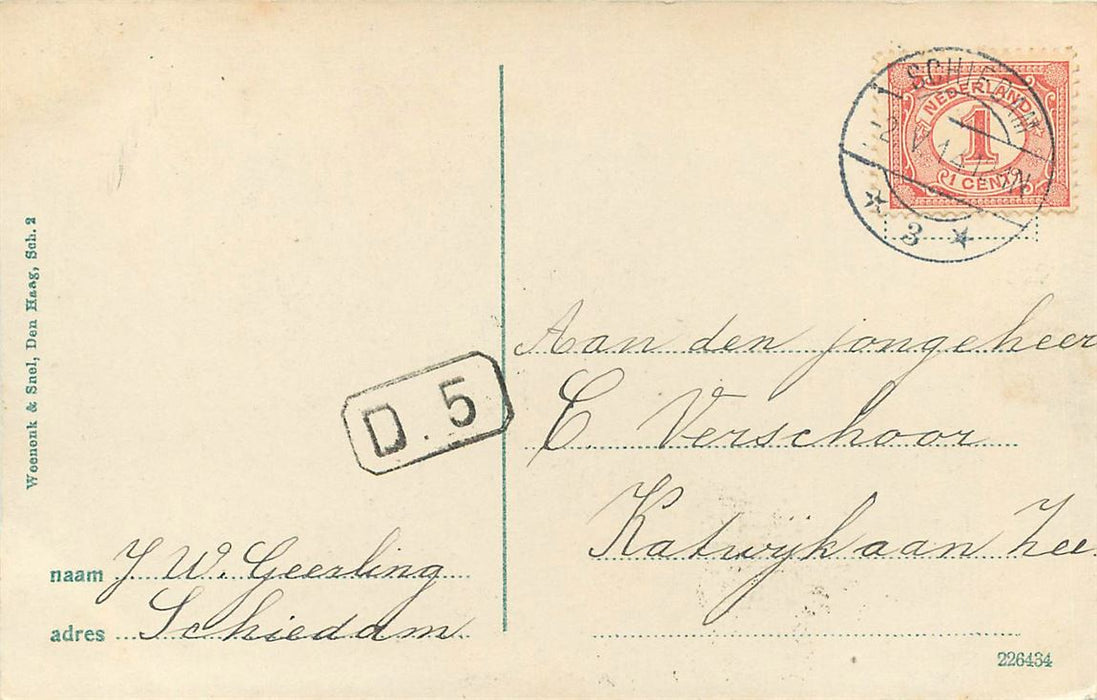 Weenonk & Snel, Den Haag, Sch. 2
SCHIEDAM
3
NEDERLAND
1
1 CENT
D. 5
Aan den jongeheer
C. Verschoor
Katwijk aan Zee
naam J. W. Geerling
adres Schiedam
226434